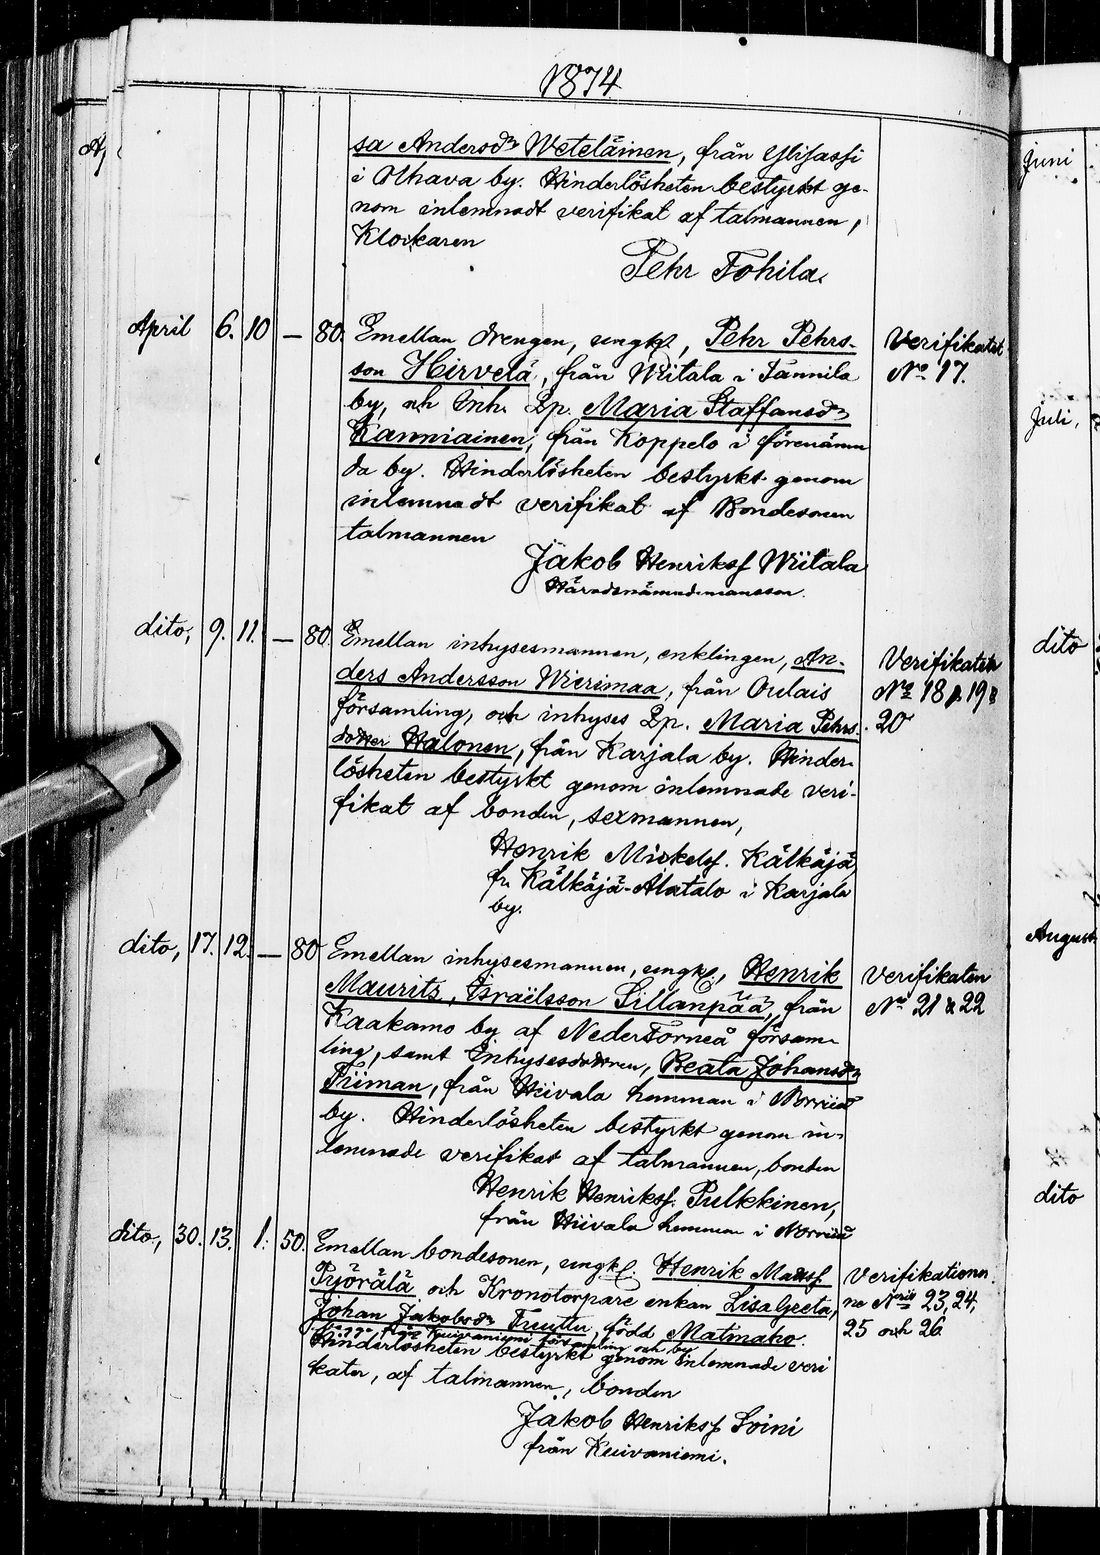 1874
sa Andersdr Weteläinen, från Ylijassi
i Olhava by. Hinderlösheten bestyrkt ge-
nom inlemnadt verifikat af talmannen,
Klockaren
Pehr Tohila.
April 6. 10 — 80. Emellan drengen, ungk., Pehr Pehrs-
son Hirvelä, från Wiitala i Tannila
by, och Inh. Qp. Maria Staffansdr
Kanniainen, från Koppelo i förenämn
da by. Hinderlösheten bestyrkt genom
inlemnadt verifikat af Bondesonen
talmannen
Jakob Henriksf Wiitala
Häradsnämndemansson.
Verifikatet
No 17.
dito, 9. 11. — 80. Emellan inhysesmannen, enklingen, An-
ders Andersson Wierimaa, från Oulais
församling, och inhyses Qp. Maria Pehrs
dotter Halonen, från Karjala by. Hinder-
lösheten bestyrkt genom inlemnade veri-
fikat af bonden, sexmannen,
Henrik Mickelsf. Kälkäjä
fr. Kälkäjä-Alatalo i Karjala
by.
Verifikaten
No 18, 19 &
20
dito, 17. 12. — 80 Emellan inhysesmannen, ungk., Henrik
Maurits, Israëlsson Sillanpää, från
Kaakamo by af NederTorneå försam-
ling, samt Inhysesdottren, Beata Johansdr
Tiiman, från Hiivala hemman i
by. Hinderlösheten bestyrkt genom in-
lemnade verifikat af talmannen, bonden
Henrik Henriksf. Pulkkinen,
från Hiivala hemman i
Verifikaten
No 21 & 22
dito, 30. 13. 1. 50. Emellan bondesonen, ungk. Henrik Matsf
Pyörälä och Kronotorpare enkan LisaGreta,
Johan Jakobsdr Fruttu, född Matinaho.
från Kuivaniemi församling och by
Hinderlösheten bestyrkt genom inlemnade veri
kater, af talmannen, bonden
Jakob Henriksf Soini
från Kuivaniemi.
Verifikationer
ne Nris 23, 24,
25 och 26
Juni
Juli,
dito
August
dito